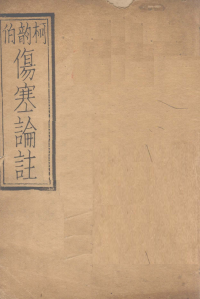 柯韵伯
傷寒論註